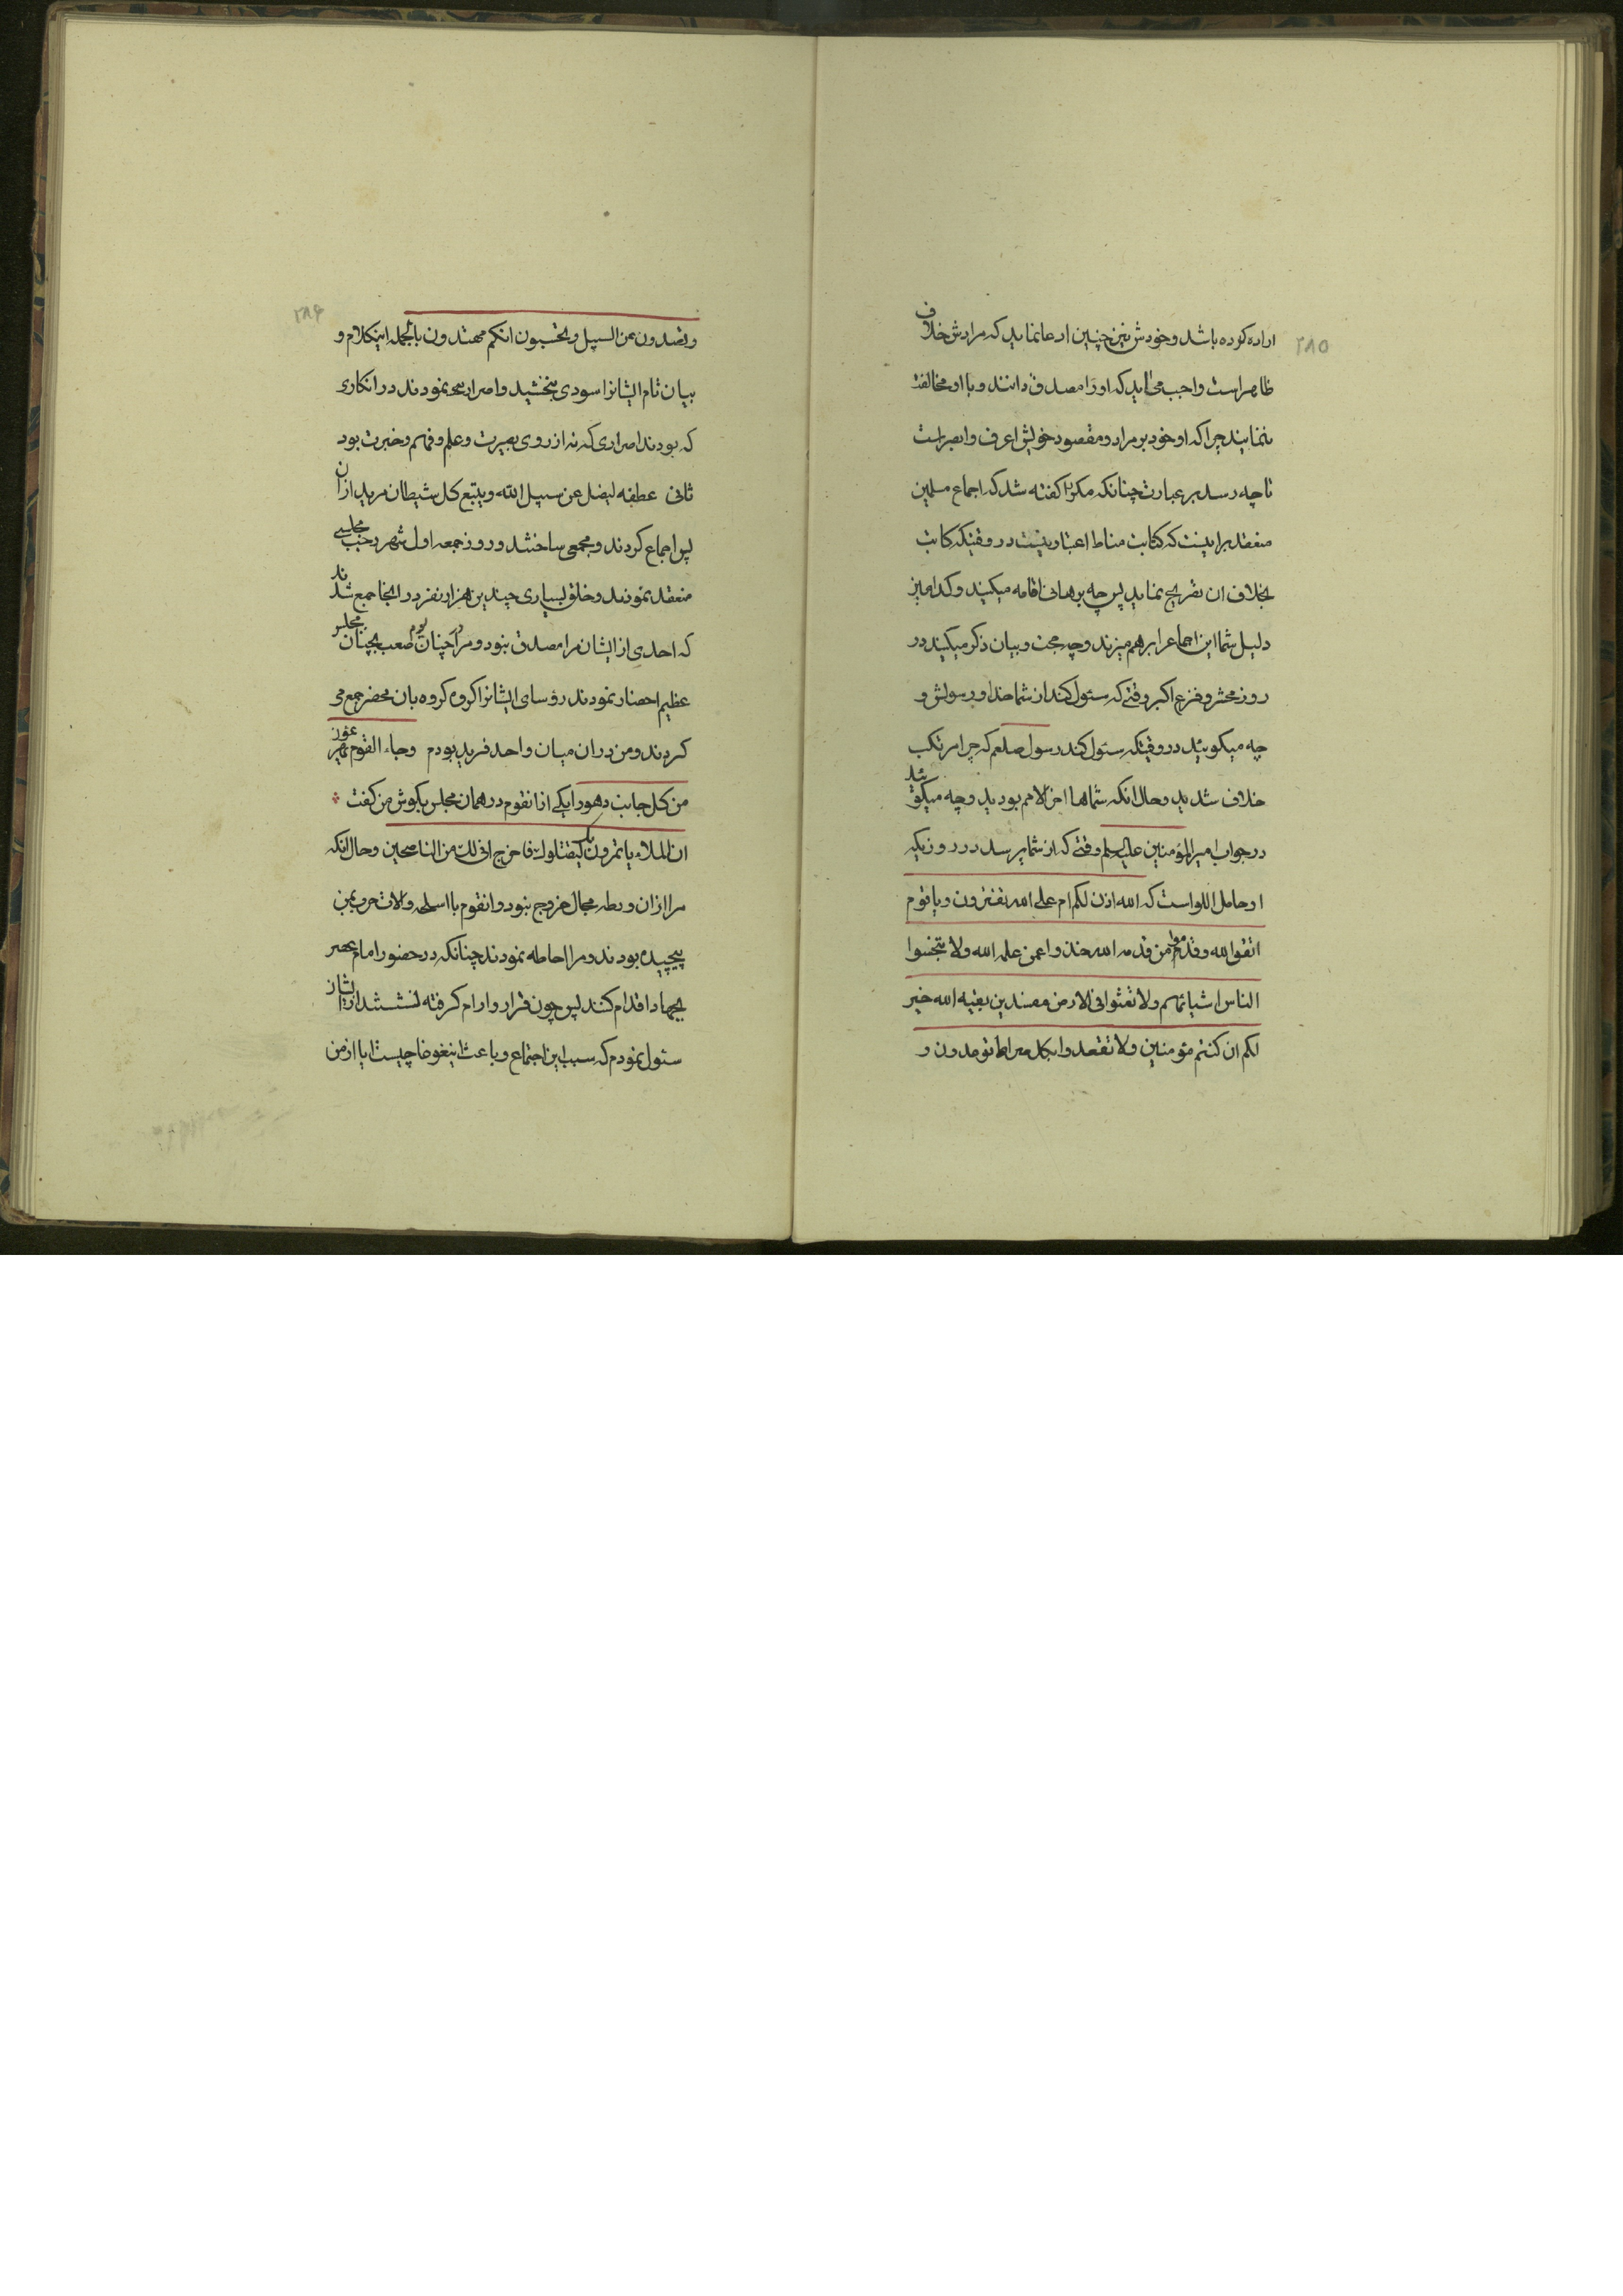 ۲۸۵
اراده کرده باشد و خودش نیز چنین ادعا نماید که مرادش خلاف
ظاهر است واجب می‌اید که او را مصدق دانند و با او مخالفت
ننمایند چرا که او خود بر مراد و مقصود خویش اعرف و ابصر است
تا چه رسد بر عبارت چنانکه مکررا کفته شد که اجماع مسلمین
منعقد بر اینست که کتابت مناط اعتبار نیست در وقتیکه کاتب
بخلاف ان تصریح نماید پس چه برهانی اقامه میکنید و کدامین
دلیل شما این اجماع را برهم میزند و چه حجت و بیان ذکر میکنید در
روز محشر و فزع اکبر وقتی که سئوال کند از شما خدا و رسولش و
چه میکوییئد در وقتیکه سئول کند رسول صلعم که چرا مرتکب
خلاف شدید و حال انکه شماها اخر الامم بودید و چه میکوئید
در جواب امیر المؤمنین علیه السلم وقتی که از شما پرسد در روزیکه
او حامل اللواست که الله اذن لکم ام علی الله تفترون و یا قوم
اتقوا الله و قدموا من قدمه الله خذوا عمن علمه الله ولا تبخسوا
الناس اشیائهم ولا تعثوا فی الارض مفسدین بقیه الله خیر
لکم ان کنتم مؤمنین ولا تقعدوا بکل صراط توعدون و
۲۸۶
و تصدون عن السبیل و تحسبون انکم مهتدون بالجمله اینکلام و
بیان تام ایشانرا سودی نبخشید و اصرار می نمودند در انکاری
که بودند اصراری که نه از روی بصیرت و علم و فهم و خبرت بود
ثانی عطفه لیضل عن سبیل الله و یتبع کل شیطان مرید از ان
پس اجماع کردند و مجمعی ساختند و روز جمعه اول شهر رجب مجلسی
منعقد نمودند و خلق بسیاری چندین هزار نفر در انجا جمع شدند
که احدی از ایشان مرا مصدق نبود و مرا در چنان یوم صعب بچنان مجلس
عظیم احضار نمودند رؤسای ایشانرا کروه کروه بان محضر جمع می
کردند و من در ان میان واحد فرید بودم و جاء القوم یهرعون
من کل جانب دهورا یکی از انقوم در همان مجلس بکوش من کفت
ان الملاء یاتمرون بک لیقتلوک فاخرج انی لک من الناصحین و حال انکه
مرا از ان ورطه مجال خروج نبود و انقوم با اسلحه و الات حرب بمن
پیچیده بودند و مرا احاطه نمودند چنانکه در حضور امام عصر
بجهاد اقدام کنند پس چون قرار و ارام کرفته نشستند از ایشان
سئول نمودم که سبب این اجتماع و باعث اینغوغا چیست ایا از من